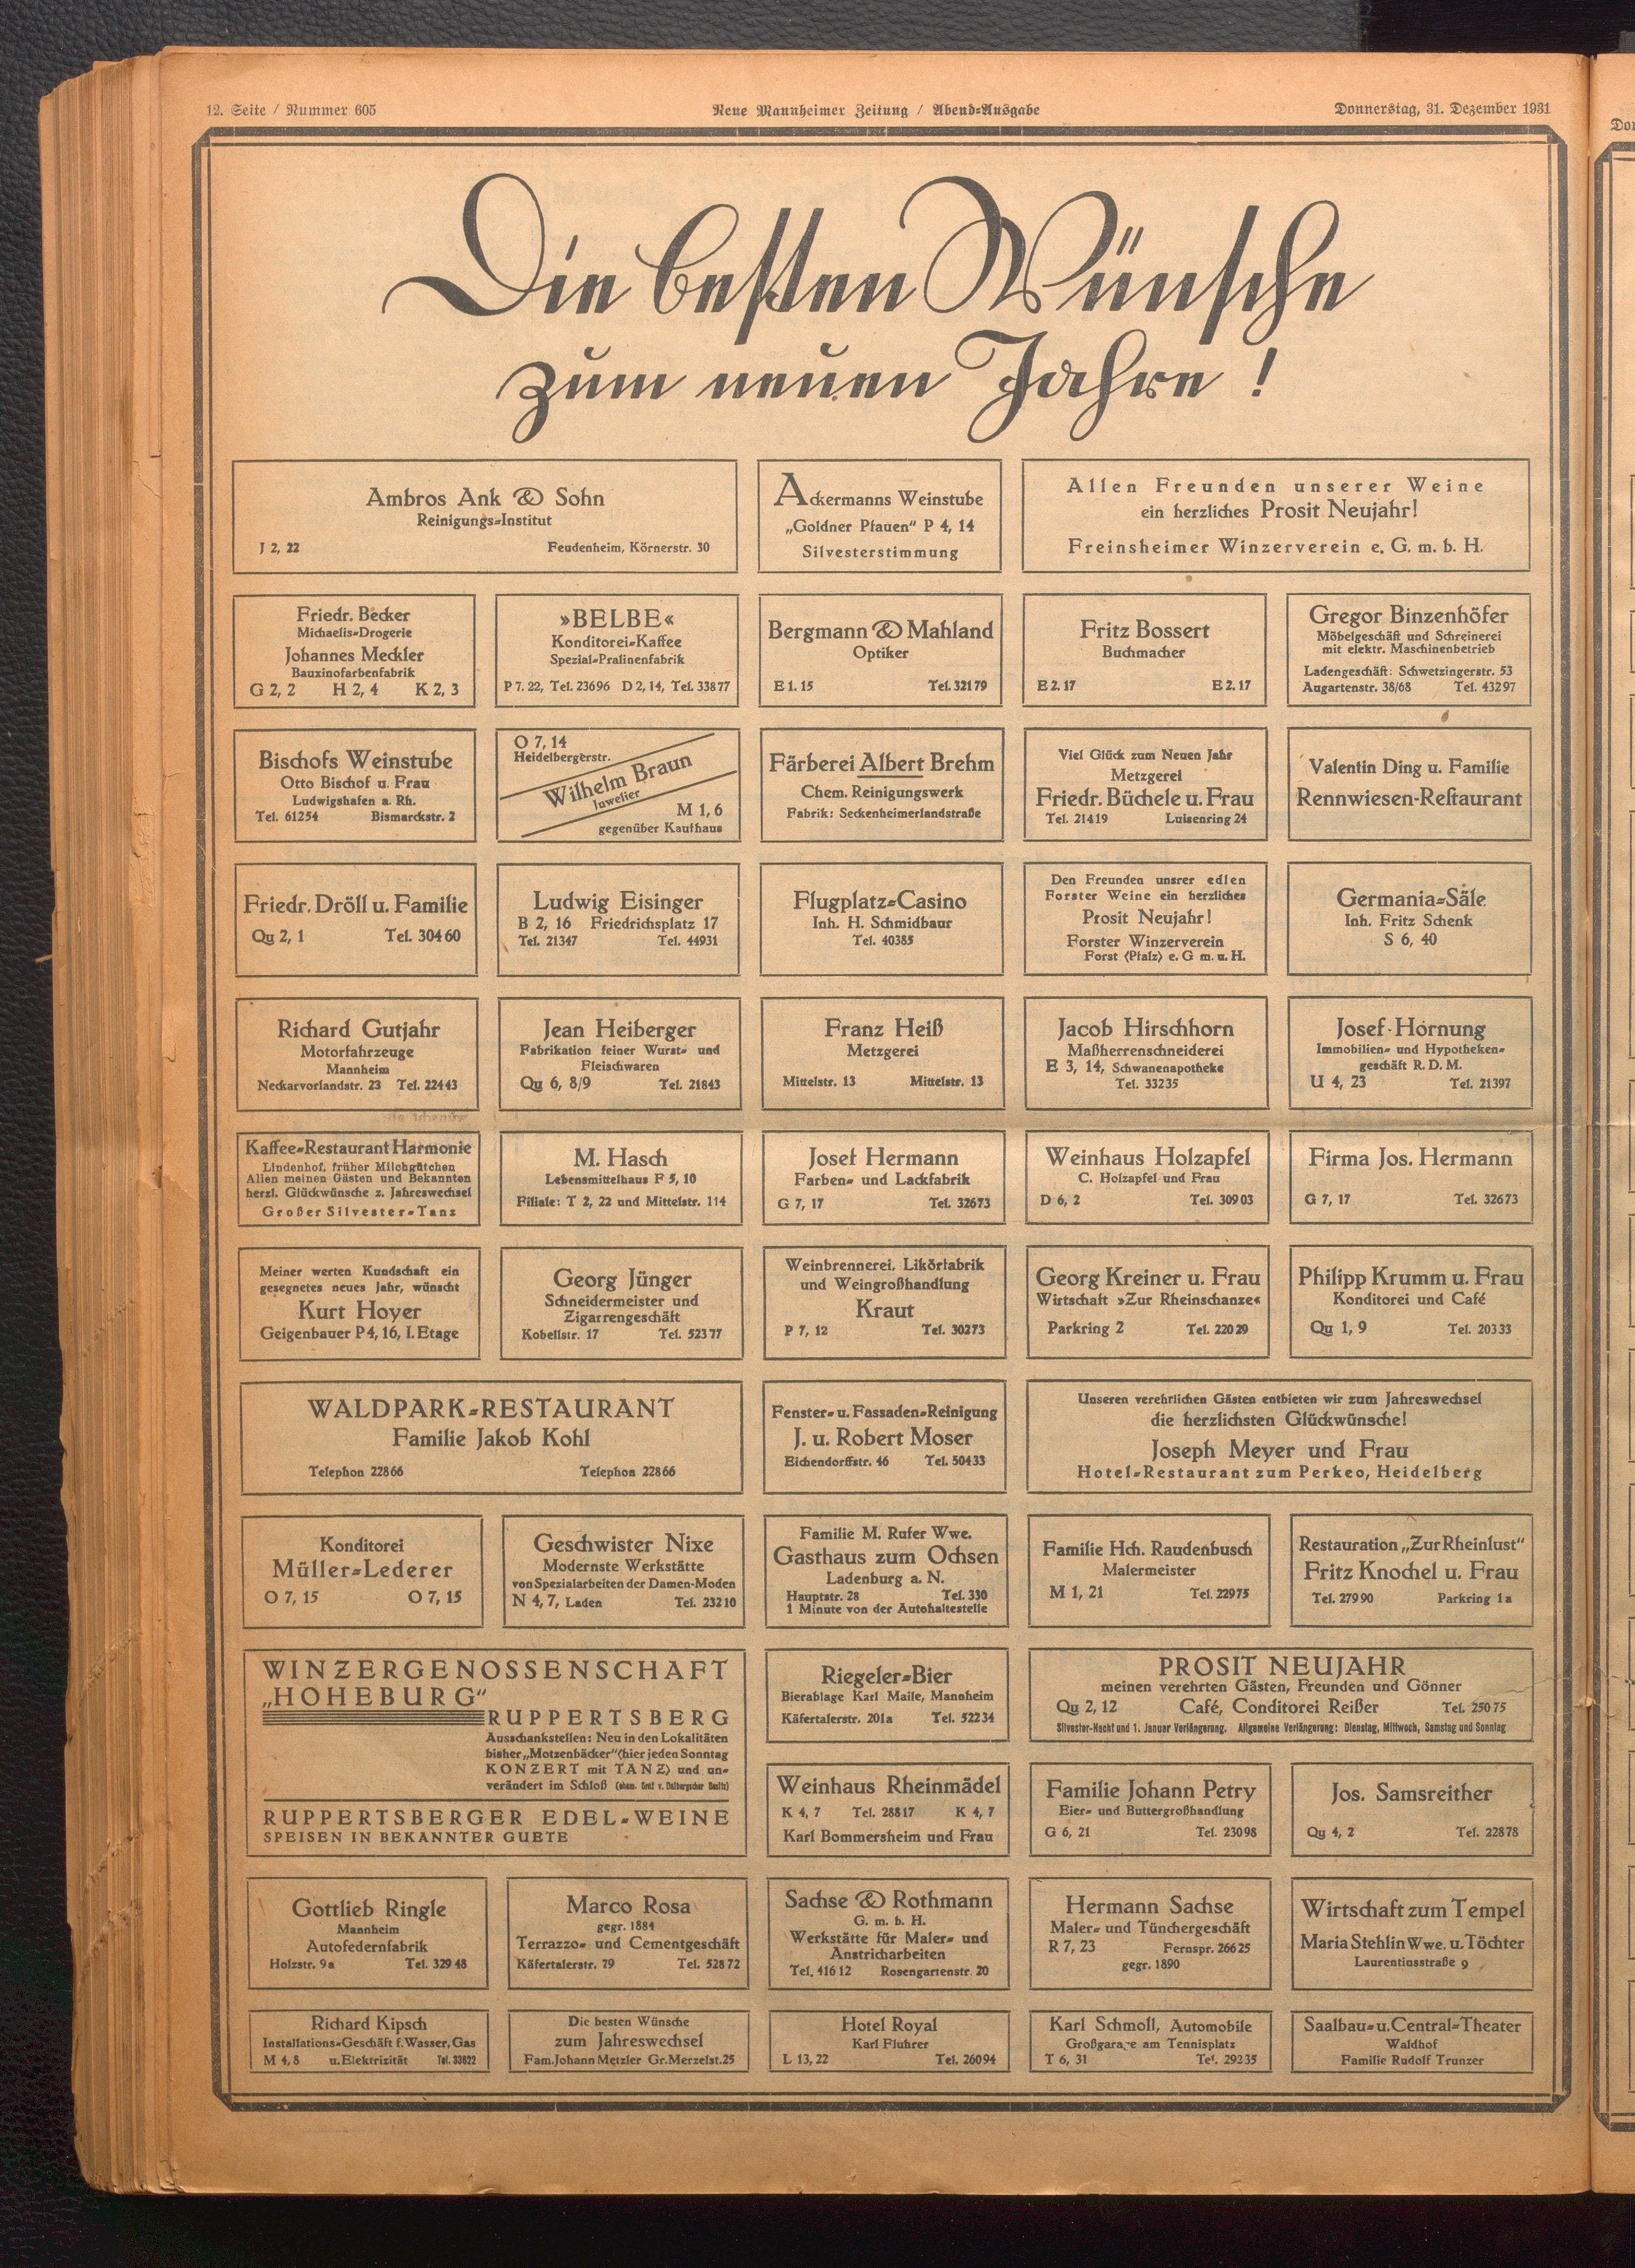 12. Seite / Nummer 605
Neue Mannheimer Zeitung / Abend-Ausgabe
Donnerstag, 31. Dezember 1931
Die besten Wünsche
zum neuen Jahre!
Ambros Ank & Sohn
Reinigungs-Institut
J 2, 22 Feudenheim, Körnerstr. 30
Ackermanns Weinstube
„Goldner Pfauen" P 4, 14
Silvesterstimmung
Allen Freunden unserer Weine
ein herzliches Prosit Neujahr!
Freinsheimer Winzerverein e. G. m. b. H.
Friedr. Becker
Michaelis-Drogerie
Johannes Meckler
Bauxinofarbenfabrik
G 2, 2 H 2, 4 K 2, 3
»BELBE«
Konditorei-Kaffee
Spezial-Pralinenfabrik
P 7. 22, Tel. 23696 D 2, 14, Tel. 33877
Bergmann & Mahland
Optiker
E 1. 15 Tel. 32179
Fritz Bossert
Buchmacher
E 2. 17 E 2. 17
Gregor Binzenhöfer
Möbelgeschäft und Schreinerei
mit elektr. Maschinenbetrieb
Ladengeschäft: Schwetzingerstr. 53
Augartenstr. 38/68 Tel. 43297
Bischofs Weinstube
Otto Bischof u. Frau
Ludwigshafen a. Rh.
Tel. 61254 Bismarckstr. 2
O 7, 14
Heidelbergerstr.
Wilhelm Braun
Juwelier
M 1, 6
gegenüber Kaufhaus
Färberei Albert Brehm
Chem. Reinigungswerk
Fabrik: Seckenheimerlandstraße
Viel Glück zum Neuen Jahr
Metzgerei
Friedr. Büchele u. Frau
Tel. 21419 Luisenring 24
Valentin Ding u. Familie
Rennwiesen-Restaurant
Friedr. Dröll u. Familie
Qu 2, 1 Tel. 30460
Ludwig Eisinger
B 2, 16 Friedrichsplatz 17
Tel. 21347 Tel. 44931
Flugplatz-Casino
Inh. H. Schmidbaur
Tel. 40385
Den Freunden unsrer edlen
Forster Weine ein herzliches
Prosit Neujahr!
Forster Winzerverein
Forst (Pfalz) e. G m. u. H.
Germania-Säle
Inh. Fritz Schenk
S 6, 40
Richard Gutjahr
Motorfahrzeuge
Mannheim
Neckarvorlandstr. 23 Tel. 22443
Jean Heiberger
Fabrikation feiner Wurst- und
Fleischwaren
Qu 6, 8/9 Tel. 21843
Franz Heiß
Metzgerei
Mittelstr. 13 Mittelstr. 13
Jacob Hirschhorn
Maßherrenschneiderei
E 3, 14, Schwanenapotheke
Tel. 33235
Josef Hornung
Immobilien- und Hypotheken-
geschäft R. D. M.
U 4, 23 Tel. 21397
Kaffee-Restaurant Harmonie
Lindenhof, früher Milchgütchen
Allen meinen Gästen und Bekannten
herzl. Glückwünsche z. Jahreswechsel
Großer Silvester-Tanz
M. Hasch
Lebensmittelhaus F 5, 10
Filiale: T 2, 22 und Mittelstr. 114
Josef Hermann
Farben- und Lackfabrik
G 7, 17 Tel. 32673
Weinhaus Holzapfel
C. Holzapfel und Frau
D 6, 2 Tel. 30903
Firma Jos. Hermann
G 7, 17 Tel. 32673
Meiner werten Kundschaft ein
gesegnetes neues Jahr, wünscht
Kurt Hoyer
Geigenbauer P 4, 16, I. Etage
Georg Jünger
Schneidermeister und
Zigarrengeschäft
Kobellstr. 17 Tel. 52377
Weinbrennerei, Likörfabrik
und Weingroßhandlung
Kraut
P 7, 12 Tel. 30273
Georg Kreiner u. Frau
Wirtschaft »Zur Rheinschanze«
Parkring 2 Tel. 22029
Philipp Krumm u. Frau
Konditorei und Café
Qu 1, 9 Tel. 20333
WALDPARK-RESTAURANT
Familie Jakob Kohl
Telephon 22866 Telephon 22866
Fenster- u. Fassaden-Reinigung
J. u. Robert Moser
Eichendorffstr. 46 Tel. 50433
Unseren verehrlichen Gästen entbieten wir zum Jahreswechsel
die herzlichsten Glückwünsche!
Joseph Meyer und Frau
Hotel-Restaurant zum Perkeo, Heidelberg
Konditorei
Müller-Lederer
O 7, 15 O 7, 15
Geschwister Nixe
Modernste Werkstätte
von Spezialarbeiten der Damen-Moden
N 4, 7, Laden Tel. 23210
Familie M. Rufer Wwe.
Gasthaus zum Ochsen
Ladenburg a. N.
Hauptstr. 28 Tel. 330
1 Minute von der Autohaltestelle
Familie Hch. Raudenbusch
Malermeister
M 1, 21 Tel. 22975
Restauration „Zur Rheinlust"
Fritz Knochel u. Frau
Tel. 27990 Parkring 1a
WINZERGENOSSENSCHAFT
„HOHEBURG"
RUPPERTSBERG
Ausschankstellen: Neu in den Lokalitäten
bisher „Motzenbäcker" (hier jeden Sonntag
KONZERT mit TANZ) und un-
verändert im Schloß (ehem. Graf v. Dalbergscher Besitz)
RUPPERTSBERGER EDEL-WEINE
SPEISEN IN BEKANNTER GUETE
Riegeler-Bier
Bierablage Karl Maile, Mannheim
Käfertalerstr. 201a Tel. 52234
PROSIT NEUJAHR
meinen verehrten Gästen, Freunden und Gönner
Qu 2, 12 Café, Conditorei Reißer Tel. 25075
Silvester-Nacht und 1. Januar Verlängerung. Allgemeine Verlängerung: Dienstag, Mittwoch, Samstag und Sonntag
Weinhaus Rheinmädel
K 4, 7 Tel. 28817 K 4, 7
Karl Bommersheim und Frau
Familie Johann Petry
Eier- und Buttergroßhandlung
G 6, 21 Tel. 23098
Jos. Samsreither
Qu 4, 2 Tel. 22878
Gottlieb Ringle
Mannheim
Autofedernfabrik
Holzstr. 9a Tel. 32948
Marco Rosa
gegr. 1884
Terrazzo- und Cementgeschäft
Käfertalerstr. 79 Tel. 52872
Sachse & Rothmann
G. m. b. H.
Werkstätte für Maler- und
Anstricharbeiten
Tel. 41612 Rosengartenstr. 20
Hermann Sachse
Maler- und Tünchergeschäft
R 7, 23 Fernspr. 26625
gegr. 1890
Wirtschaft zum Tempel
Maria Stehlin Wwe. u. Töchter
Laurentiusstraße 9
Richard Kipsch
Installations-Geschäft f. Wasser, Gas
M 4, 8 u. Elektrizität Tel. 33622
Die besten Wünsche
zum Jahreswechsel
Fam. Johann Metzler Gr. Merzelst. 25
Hotel Royal
Karl Fluhrer
L 13, 22 Tel. 26094
Karl Schmoll, Automobile
Großgarage am Tennisplatz
T 6, 31 Tel. 29235
Saalbau- u. Central-Theater
Waldhof
Familie Rudolf Trunzer